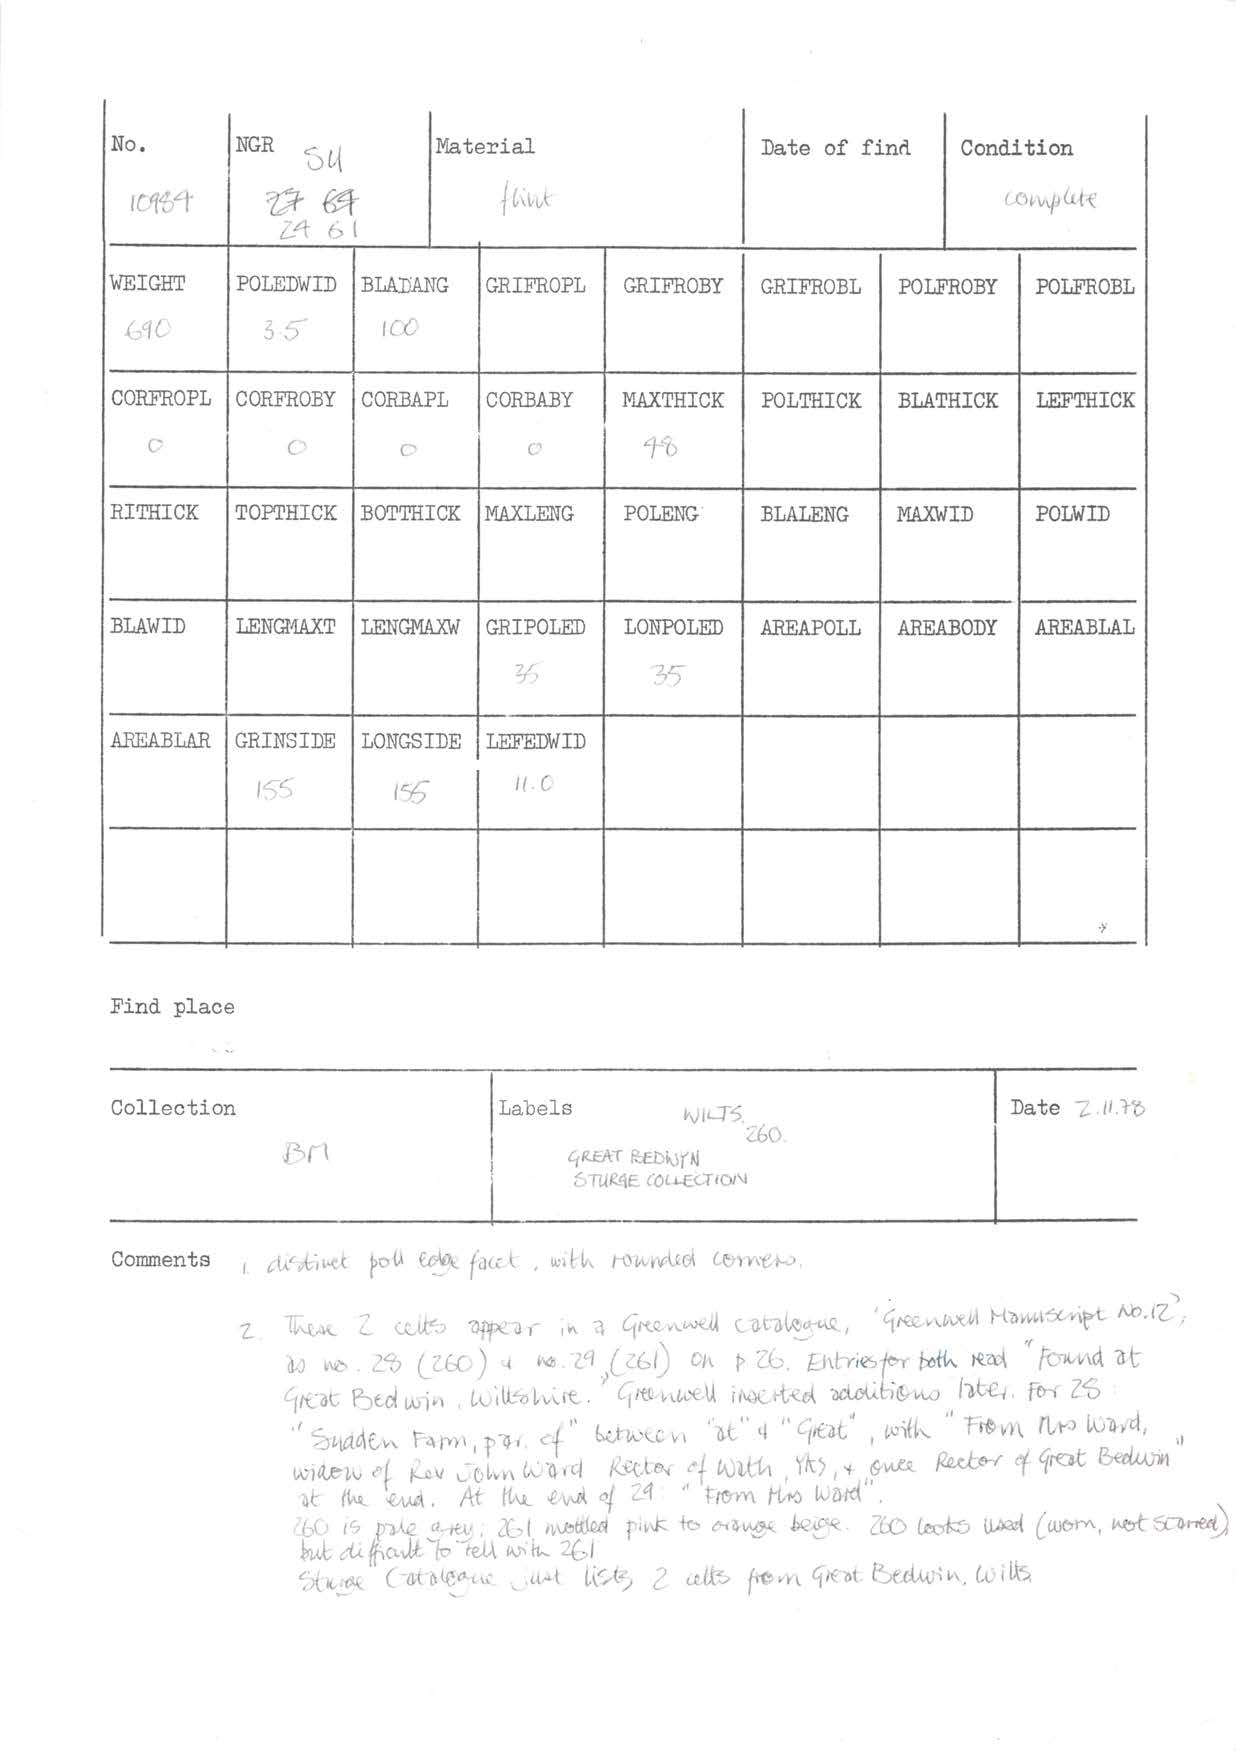 No. NGR Material Date of find Condition
SU
10984 27 67 flint complete
24 61
WEIGHT POLEDWID BLADANG GRIFROPL GRIFROBY GRIFROBL POLFROBY POLFROBL
690 3.5 100
CORFROPL CORFROBY CORBAPL CORBABY MAXTHICK POLTHICK BLATHICK LEFTHICK
0 0 0 0 48
RITHICK TOPTHICK BOTTHICK MAXLENG POLENG BLALENG MAXWID POLWID
BLAWID LENGMAXT LENGMAXW GRIPOLED LONPOLED AREAPOLL AREABODY AREABLAL
35 35
AREABLAR GRINSIDE LONGSIDE LEFEDWID
155 155 11.0
Find place
Collection Labels WILTS. Date 2.11.78
260.
BM GREAT BEDWYN
STURGE COLLECTION
Comments 1. distinct poll edge facet, with rounded corners.
2. These 2 celts appear in a Greenwell catalogue, 'Greenwell Manuscript No.12',
as no. 28 (260) & no. 29 (261) on p 26. Entries for both read "Found at
Great Bedwin, Wiltshire." Greenwell inserted additions later. For 28:
"Sudden Farm, par. of" between "at" & "Great", with "From Mrs Ward,
widow of Rev John Ward Rector of Wath, Yks, & once Rector of Great Bedwin"
at the end. At the end of 29: "From Mrs Ward".
260 is pale grey; 261 mottled pink to orange beige. 260 looks used (worn, not scarred),
but difficult to tell with 261
Sturge Catalogue just lists 2 celts from Great Bedwin, Wilts.